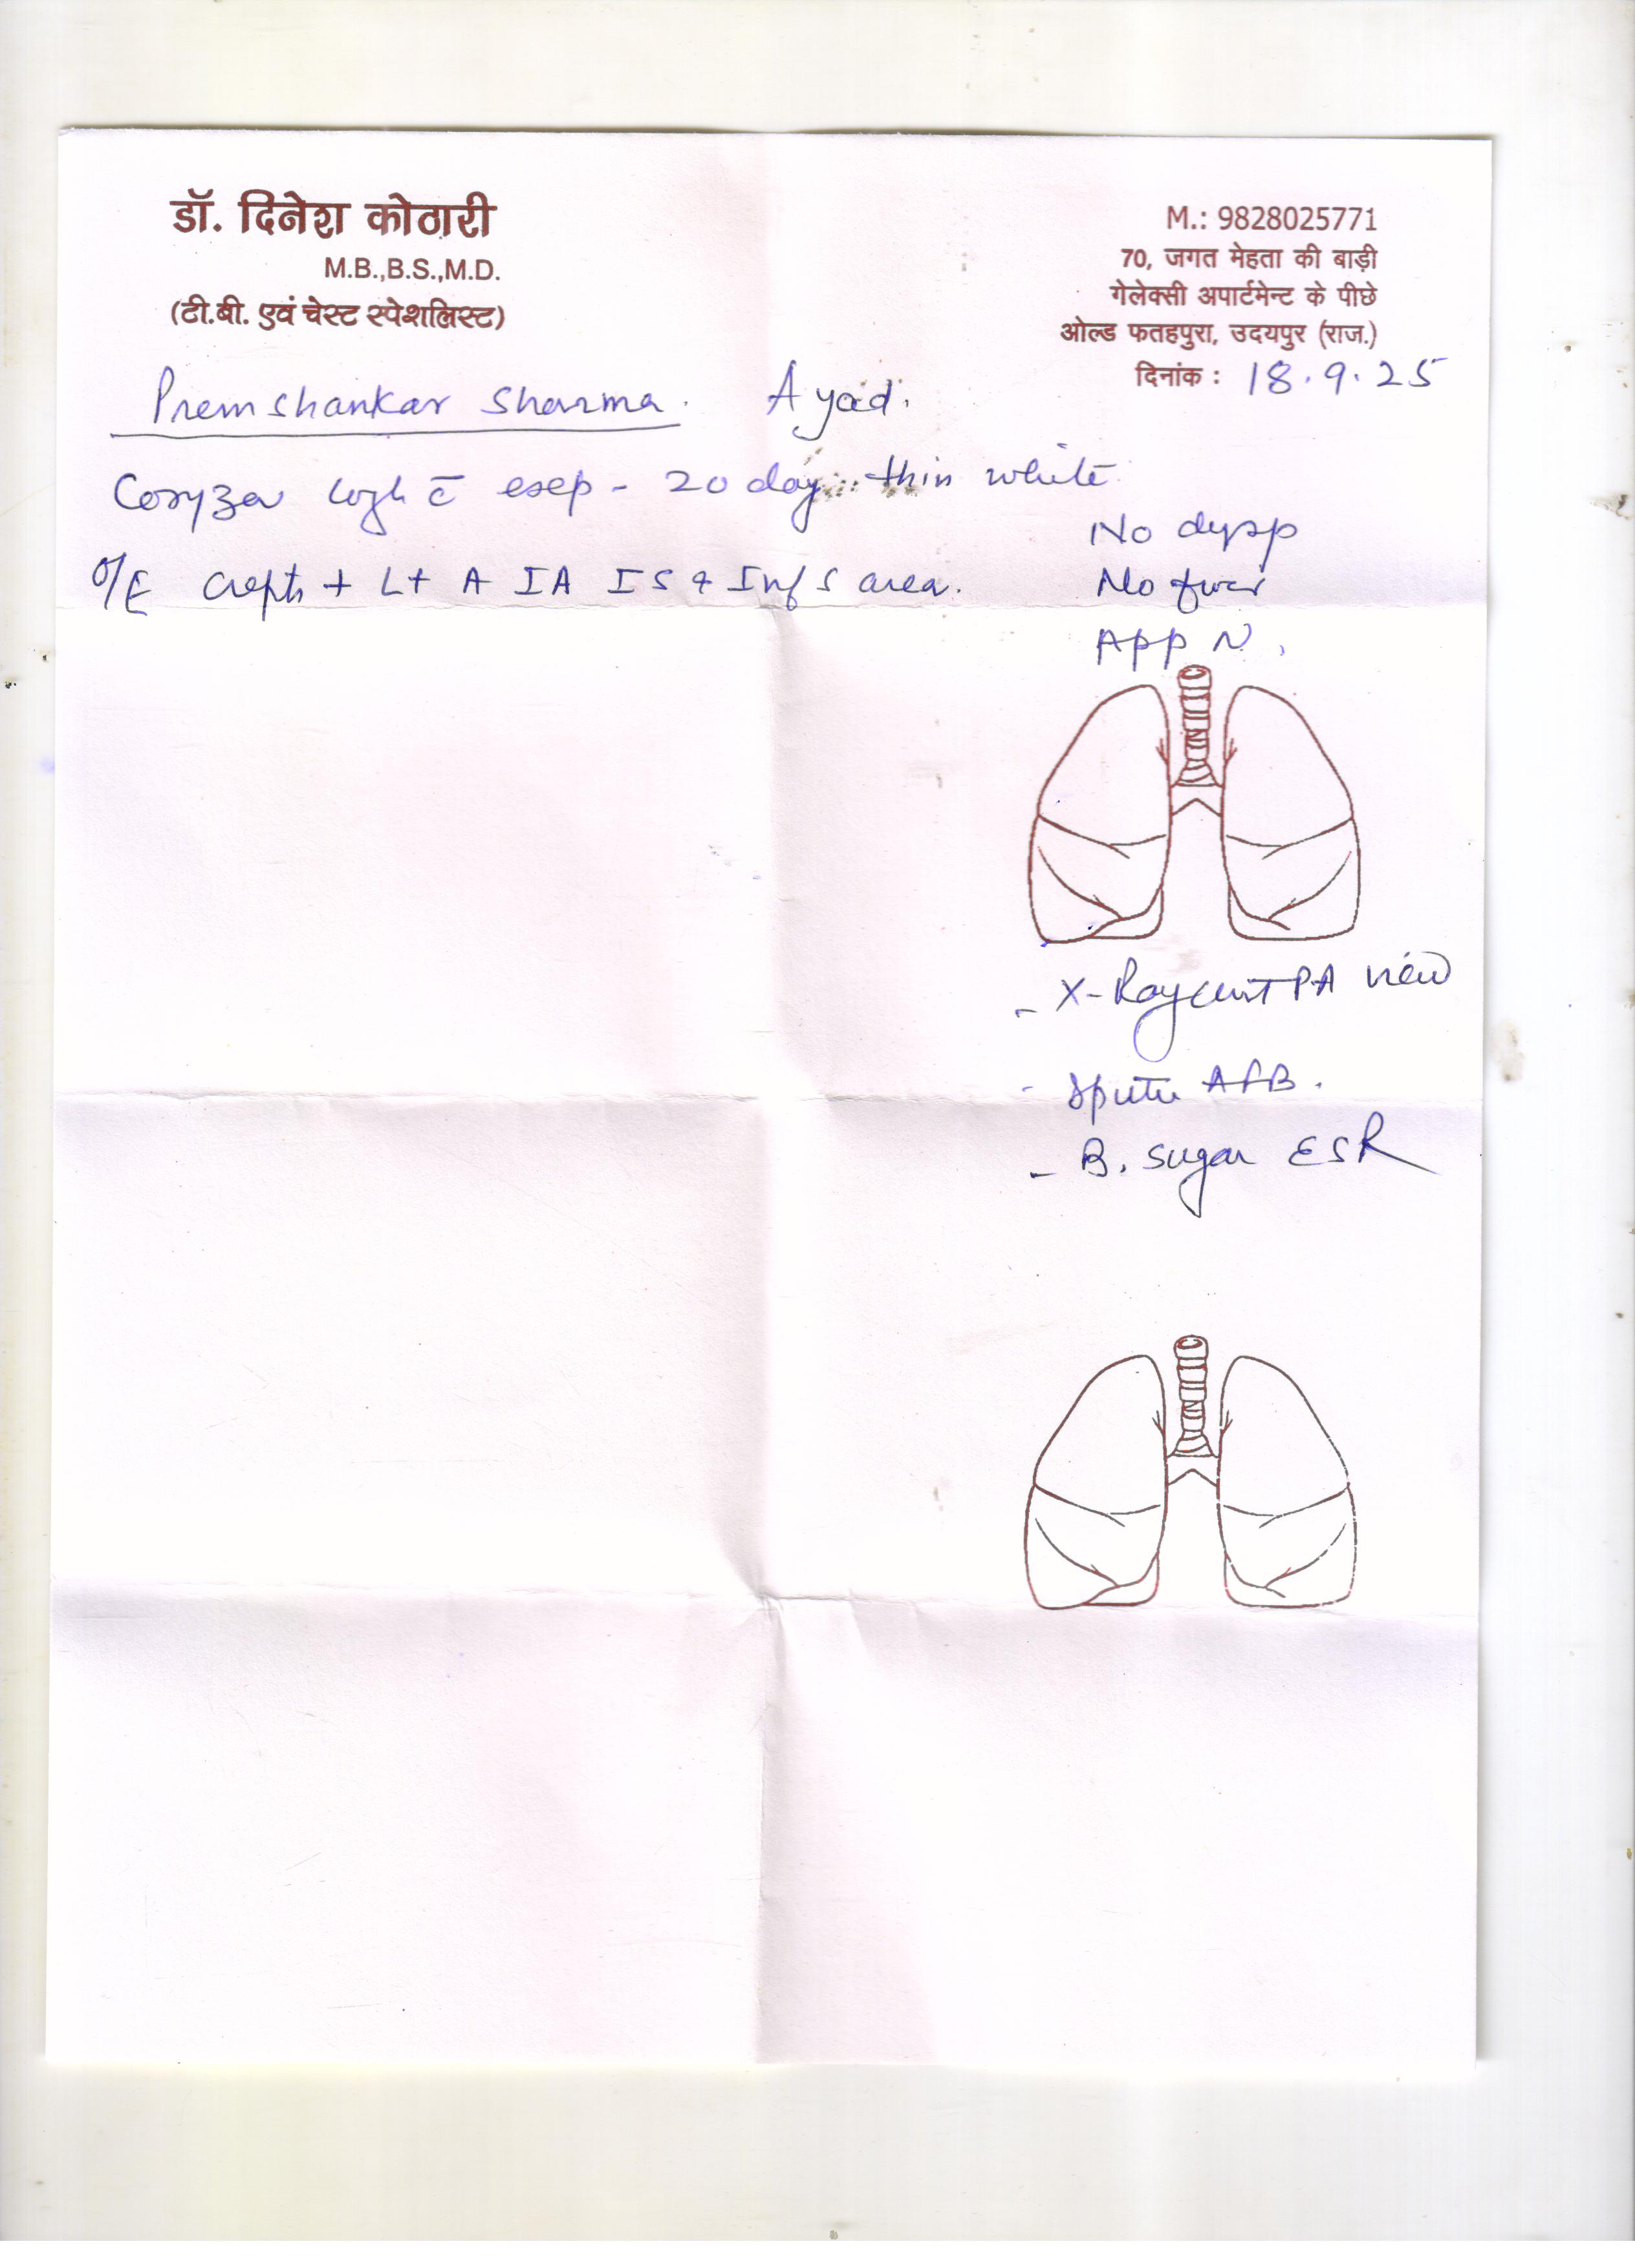 डॉ. दिनेश कोठारी
M.B.,B.S.,M.D.
(टी.बी. एवं चेस्ट स्पेशलिस्ट)
M.: 9828025771
70, जगत मेहता की बाड़ी
गेलेक्सी अपार्टमेन्ट के पीछे
ओल्ड फतहपुरा, उदयपुर (राज.)
दिनांक : 18.9.25
Premshankar Sharma. Ayad.
Coryza cough c̄ - 20 day thin white
No dysp
O/E crepts + Lt A IA IS & InfS area.
No fever
App N.
- X-Ray chest PA view
- Sputum AFB.
- B. sugar ESR